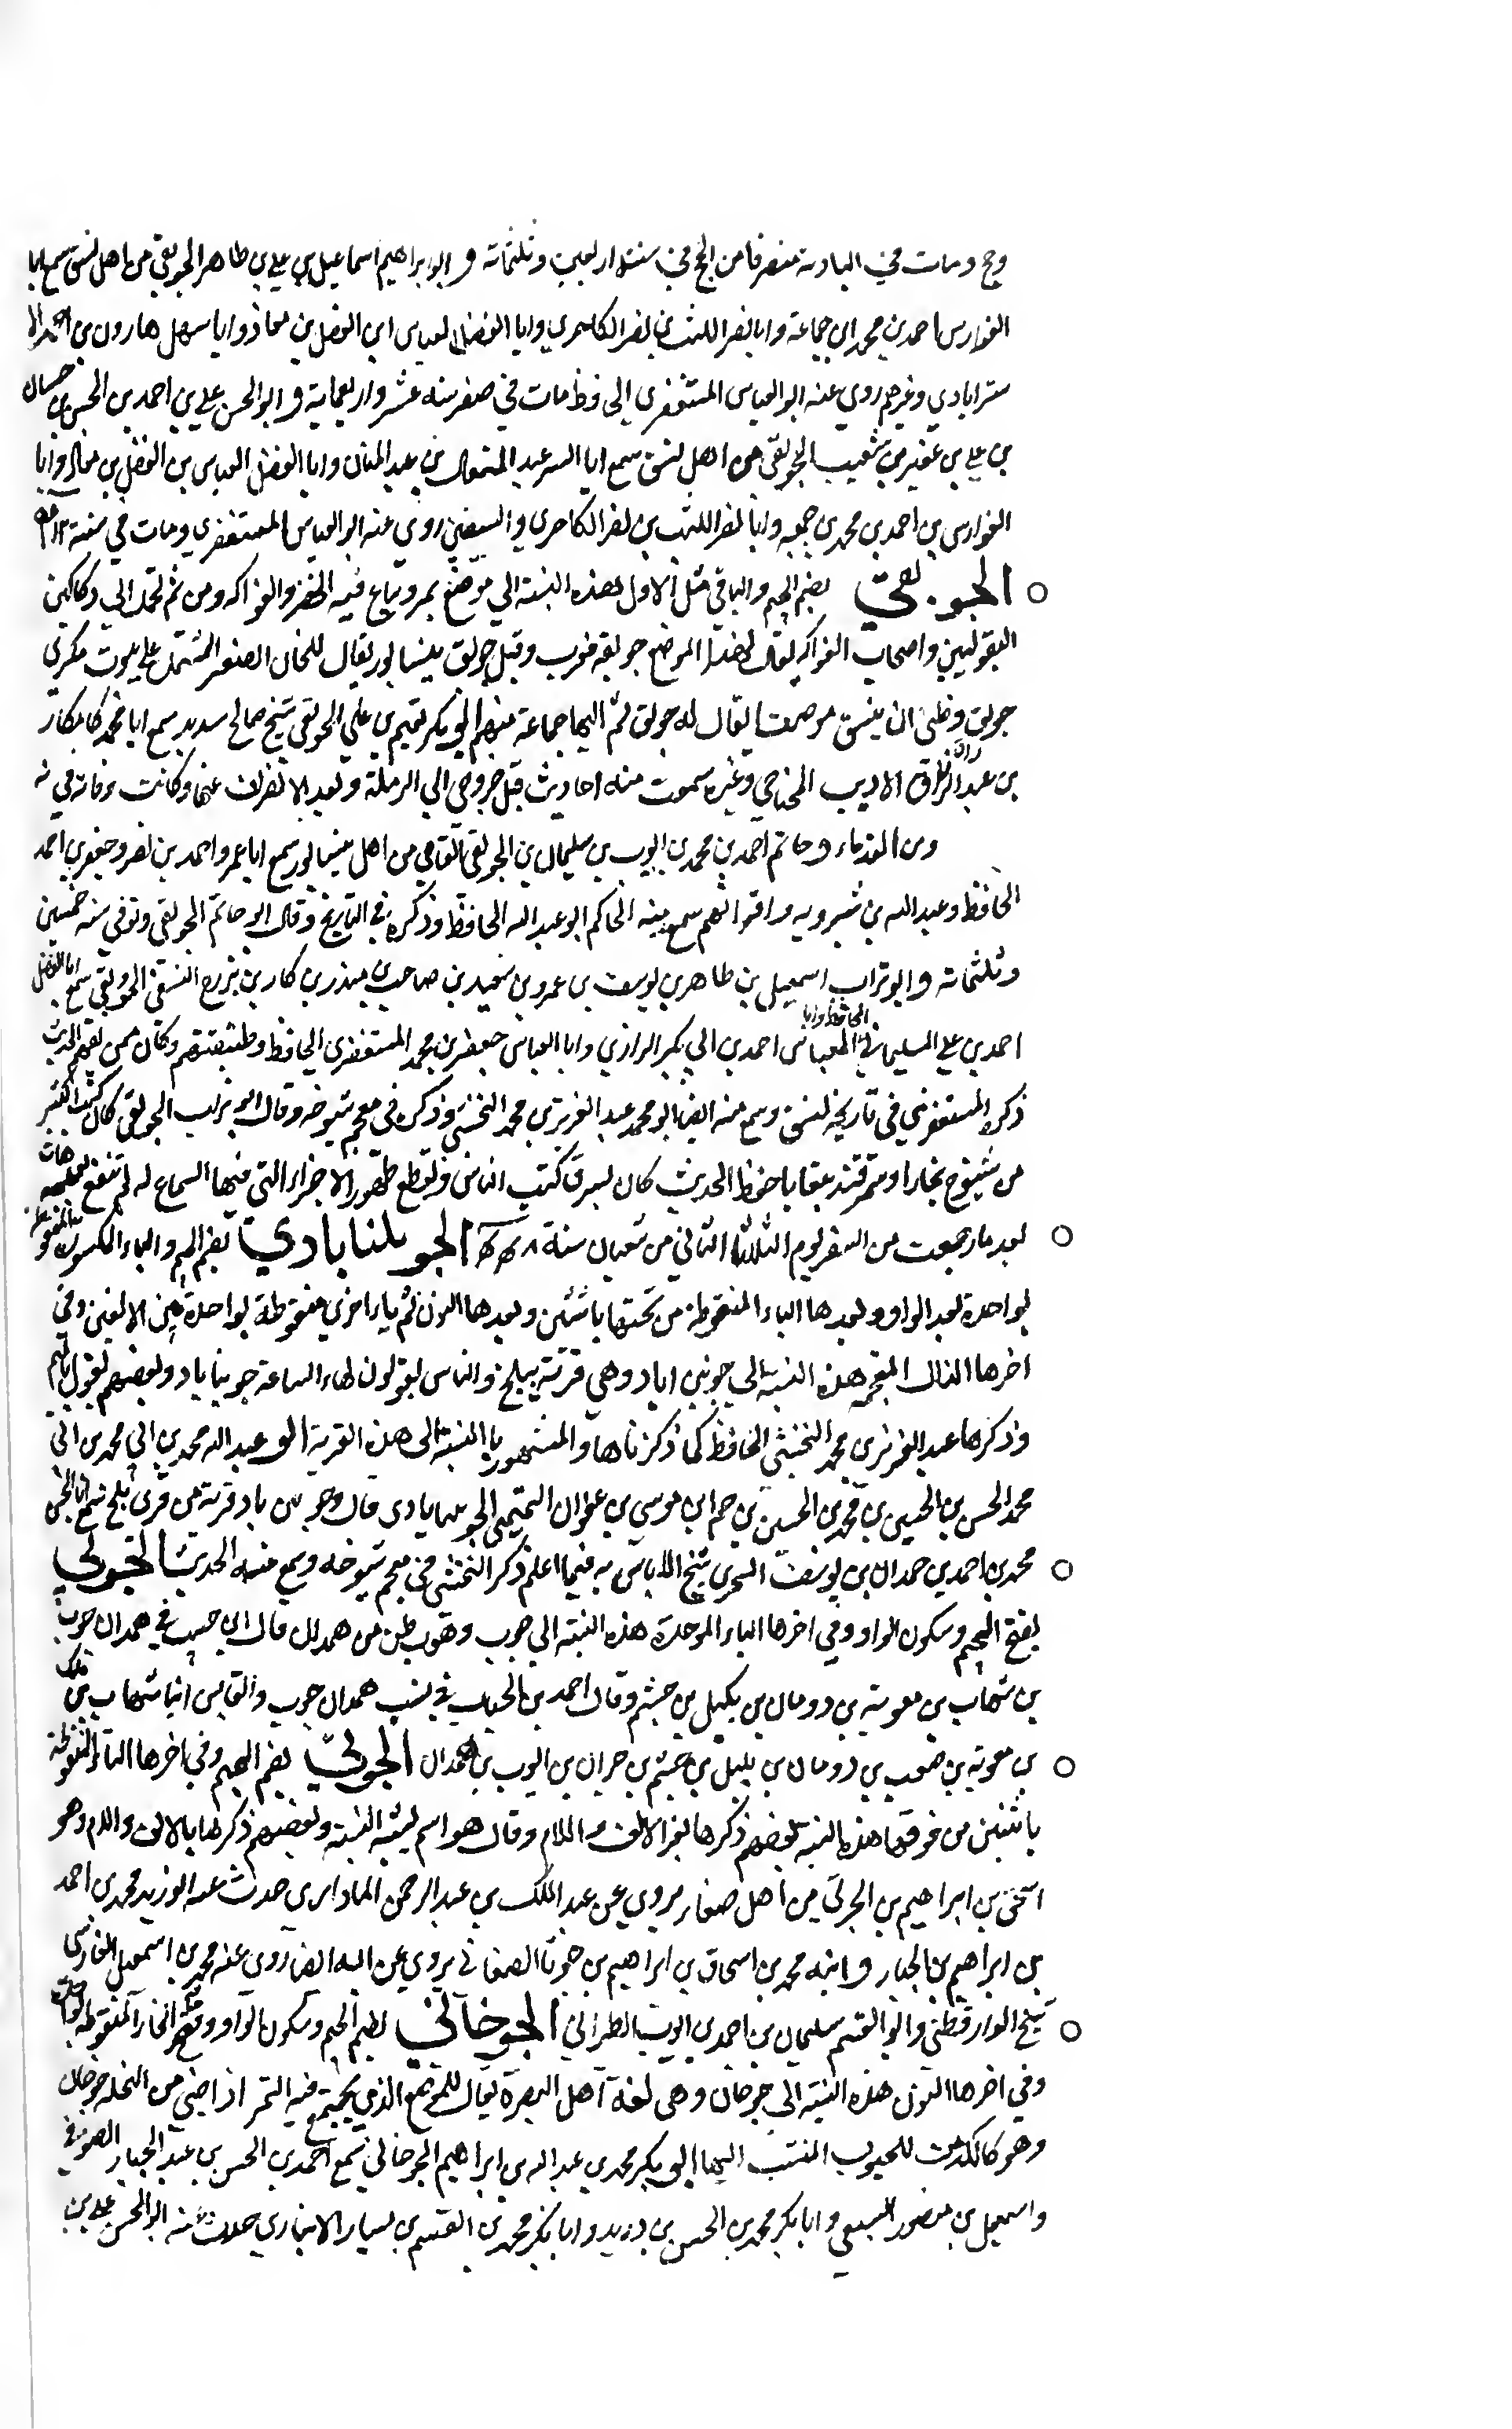 وحج ومات في البادية منصرفا من الحج في سنة اربعين وثلثمائة و ابو ابراهيم اسماعيل بن علي بن طاهر الجوبقي من اهل نسف سمع ابا
الفوارس احمد بن محمد ابن جماعة وابا نصر الليث بن نصر الكاجري وابا الفضل العباس ابن الفضل بن معاذ وابا سهل هارون بن احمد الا
ستراباذي وغيرهم روي عنه ابو العباس المستغفري الحافظ مات في صفر سنة عشر واربعماية و ابو الحسن علي بن احمد بن الحسن بن حسان
بن علي بن عفير بن شعيب الجوبقي من اهل نسف سمع ابا اليسر عبد المتعال بن عبد المنان وابا الفضل العباس بن الفضل بن معاذ وابا
الفوارس بن احمد بن محمد بن جمعه وابا نصر الليث بن نصر الكاجري والنسفي روي عنه ابو العباس المستغفري ومات في سنة
الجوبقي بضم الجيم والباقي مثل الاول هذه النسبة الي موضع بمرو يباع فيه الخضر والفواكه ومن ثم تحمل الي دكاكين
البقوليين واصحاب الفواكه يقال لهذا الموضع جوبقه فعرب وقيل جوبق بنيسابور يقال للخان الصغير المشتمل علي بيوت تكري
جوبق وظني ان بنسف موضعا يقال له جوبق ثم اليها جماعة منهم ابو بكر تميم بن علي الجوبقي شيخ صالح سديد سمع ابا محمد كامكار
بن عبد الرزاق الاديب المحتاجي وغيره سمعت منه احاديث قبل خروجي الي الرحلة وبعد الانصراف عنها وكانت وفاته في سنه
ومن القدماء و حاتم احمد بن محمد بن ايوب بن سليمان بن الجوبقي القاضي من اهل نيسابور سمع ابا عمرو احمد بن نصر وجعفر بن احمد
الحافظ وعبد الله بن شيرويه واقرانهم سمع منه الحاكم ابو عبد الله الحافظ وذكره في التاريخ وقال ابو حاتم الجوبقي وتوفي سنه خمسين
وثلثمائة و ابو تراب اسمعيل بن طاهر بن يوسف بن عمرو بن سعيد بن صاحب بن منذر بن كار بن بزرع النسفي الجوبقي سمع ابا الفضل
احمد بن علي السليماني الحافظ وابا العباس احمد بن ابي بكر الرازي وابا العباس جعفر بن محمد المستغفري الحافظ وطبقتهم وكان ممن يفهم الحديث
ذكره المستغفري في تاريخ نسف وسمع منه ايضا ابو محمد عبد العزيز بن محمد النخشبي وذكره في معجم شيوخه وقال ابو تراب الجوبقي كان كتب الكثير
من شيوخ بخارا وسمرقند بقايا باحفظ الحديث كان يسرق كتب الناس ويقطع ظهور الاجزاء التي فيها السماع له لم ينتفع بعلمه مات
بعد ما رجعت من السفر يوم الثلثا الثاني من شعبان سنة الجوبنابادي بضم الجيم والباء المكسورة المنقوطة
بواحدة بعد الواو وبعدها الياء المنقوطة من تحتها باثنتين وبعدها النون ثم باء اخري منقوطة بواحدة بين الالفين وفي
اخرها الذال المعجمه هذه النسبة الي جوبين اباد وهي قرية ببلخ والناس يقولون لها الساعة جوبناباد وبعضهم يقول
وذكرها عبد العزيز بن محمد النخشبي الحافظ كما ذكرناها والمشهور با النسبة الي هذه القرية ابو عبد الله محمد بن ابي محمد بن ابي
محمد الحسن بن الحسين بن محمد بن الحسين بن حم ابن موسي بن عفوان التميمي الجوبنابادي قال وجوبين باد قرية من قري بلخ سمع ابا الحسن
محمد بن احمد بن حمدان بن يوسف السجزي شيخ لا باس به فيما اعلم ذكر النخشبي في معجم شيوخه وسمع منه الحديث الجوبي
بفتح الجيم وسكون الواو وفي اخرها الباء الموحدة هذه النسبة الي جوب وهو بطن من همدان قال ابن حبيب في همدان جوب
بن شهاب بن معوية بن دومان بن بكيل بن جشم وقال احمد بن الحباب في نسب همدان جوب والقايس ابنا شهاب بن مالك
بن معوية بن صعب بن دومان بن بكيل بن جشم بن حبران بن ايوب بن همدان الجوتي بضم الجيم وفي اخرها التاء المنقوطة
باثنتين من فوقها هذه النسبة بعضهم ذكرها بغير الالف واللام وقال هو اسم يشبه النسبة وبعضهم ذكرها بالالف واللام وهو
اسحق بن ابراهيم بن الجوتي من اهل صنعا يروي عن عبد الملك بن عبد الرحمن الذماري حدث عنه الوزير محمد بن احمد
بن ابراهيم بن الجبار و ابنه محمد بن اسحاق بن ابراهيم بن جوتا الصنعاني يروي عن ابيه ايضا روي عنه محمد بن اسمعيل الفارسي
شيخ الدارقطني و ابو القسم سليمان بن احمد بن ايوب الطبراني الجوخاني بضم الجيم وسكون الواو وفتح الخاء المنقوطه بواحدة
وفي اخرها النون هذه النسبة الي جوخان وهي لغة اهل البصرة يقال للموضع الذي يجتمع فيه التمر اذا جني من النخله جوخان
وهو كالكدس للحبوب المنتسب اليها ابو بكر محمد بن عبد الله بن ابراهيم الجوخاني سمع احمد بن الحسن بن عبد الجبار الصوفي
واسمعيل بن منصور الشيعي وابا بكر محمد بن الحسن بن دريد وابا بكر محمد بن القسم بن بسار الانباري حدث عنه ابو الحسن علي بن